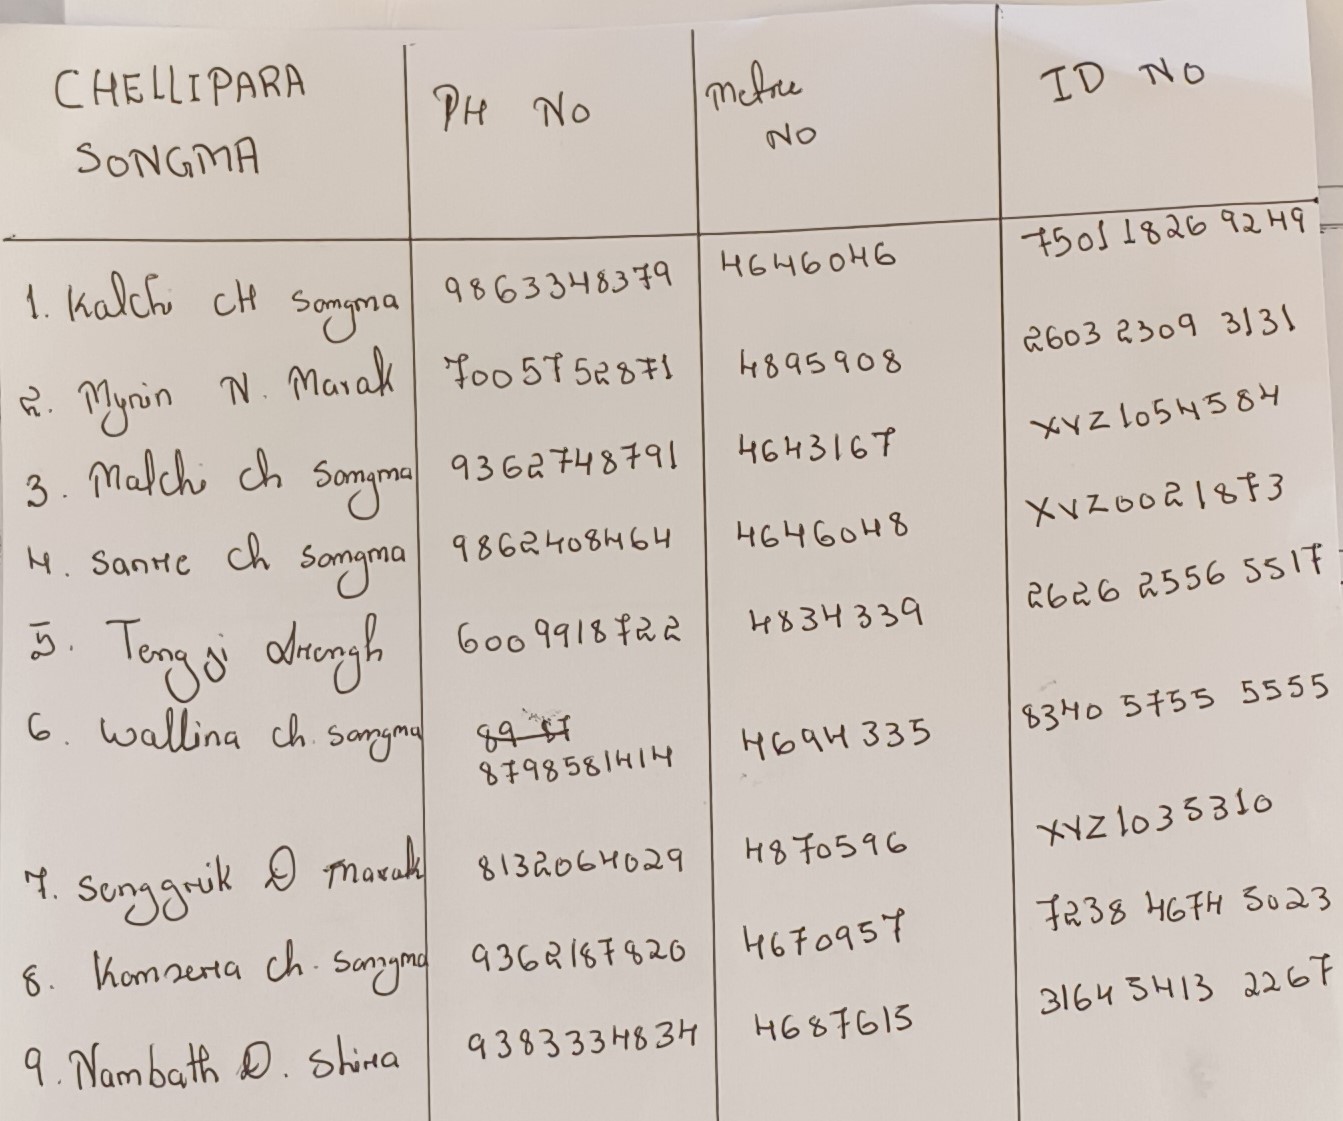 CHELLIPARA SONGMA PH NO Metre NO ID NO
1. Kalchi CH Sangma 9863348379 4646046 7501 1826 9249
2. Myrin N. Marak 7005752871 4895908 2603 2309 3131
3. Malchi ch Sangma 9362748791 4643167 XVZ1054584
4. Sanre ch Sangma 9862408464 4646048 XVZ0021873
5. Tengji drengh 6009918722 4834339 2626 2556 5517
6. Wallina ch. Sangma 8798581414 4694335 8340 5755 5555
7. Senggrik D Marak 8132064029 4870596 XYZ1035310
8. Komseria ch. Sangma 9362187820 4670957 7238 4674 5023
9. Nambath D. Shira 9383334834 4687615 3164 5413 2267